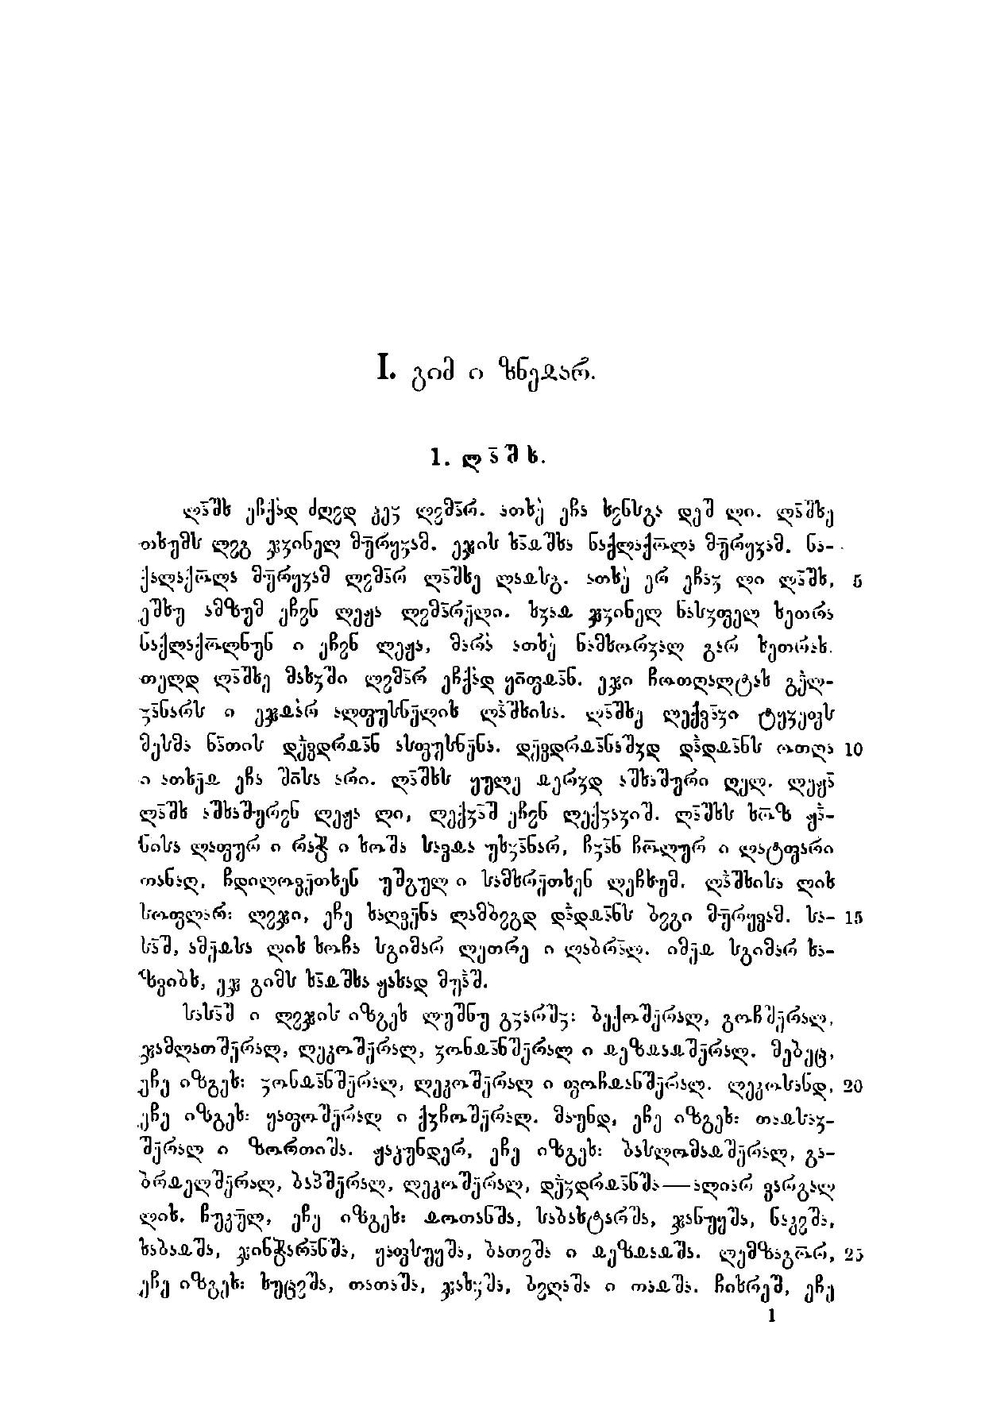 I. გიმ ი ზნეჲარ.
1. ლა̄შხ.
ლა̄შხ ეჩქა̈დ ძღჷდ კეჳ ლჷმა̄რ. ათხე̈ ეჩა ხჷნსგა დეშ ლი. ლა̄შხე
თხუმს ლჷგ ჯჳინელ მუ̄რყჳამ. ეჯის ხა̄ჲშხა ნაქლაქო̄ლა მუ̄რყჳამ. ნა-
ქალაქო̄ლა მუ̄რყჳამ ლჷმა̄რ ლა̄შხე ლაჲსგ. ათხე̈ ერ ეჩაჳ ლი ლა̄შხ, 5
ეშხუ ამზუმ ეჩჷნ ლეჟა ლჷმა̄რე̄ლი. ხჳაჲ ჯჳინელ ნასჳფელ ხეთრა
ნაქლაქო̄ლნუნ ი ეჩჷნ ლეჟა, მარა̈ ათხე̈ ნამხორჳალ გარ ხეთრახ.
თელდ ლა̄შხე მახჳში ლჷმა̄რ ეჩქა̈დ ყო̄ფია̄ნ. ეჯი ჩოთღალტახ გე̈ლ-
ჳა̄ნარს ი ეჯჲა̈რ ალფუსნე̄ლის ლა̈შხისა. ლა̄შხე ლექვა̄ჳი ტყჳეფს
მესმა ნა̄თის დე̈ვდრია̄ნ ასფუსნე̄ნა. დე̄ვდრია̄ნაშჳდ და̈დია̄ნს ოთღა 10
ი ათხე̄ჲ ეჩა შო̄სა არი. ლა̄შხს ყულე ჲერჳდ აშხაშური ღელ. ლეჟა̄
ლა̄შხ აშხაშურჷნ ლეჟა ლი, ლექჳა̄შ ეჩჷნ ლექჳაჳიშ. ლა̄შხს ხო̄ზ ყა̈-
ნისა ლაფურ ი რაჭ ი ხოშა სავჲა უხჳა̄ნარ, ჩჳა̄ნ ჩო̄ლურ ი ლატფარი
თანაღ, ჩდილოვე̄თხენ უშგულ ი სამხრე̄თხენ ლეჩხუმ. ლა̈შხისა ლის
სოფლა̈რ: ლჷჯი, ეჩე საღვე̄ნა ლამბჷგდ და̈დია̄ნს ბჷგი მუ̄რყვამ. სა- 15
სა̄შ, ამე̄ჲსა ლის ხოჩა სგიმარ ლეთრე ი ლაბრა̈ლ. იმე̄ჲ სგიმარ ხა-
ზვიბს, ეჯ გიმს ხა̄ჲშხა ჟახად მუა̈შ.
სასა̄შ ი ლჷჯის იზგეხ ლუშნუ გჳარშჳ: ბექოშე̄რალ, გოჩშე̄რალ,
ჯამლათშე̄რალ, ლეკოშე̄რალ, ჯონჲა̄ნშე̄რალ ი ჲეზჲაჲშე̄რალ. მებეც,
ეჩე იზგეხ: ჯონჲა̄ნშე̄რალ, ლეკოშე̄რალ ი ფოჩჲანშე̄რალ. ლეკოსანდ, 20
ეჩე იზგეხ: ყაფოშე̄რალ ი ქჳჩოშე̄რალ. მაუნდ, ეჩე იზგეხ: თაჲსაჳ-
შე̄რალ ი ზორთიშა. ჟაკუნდერ, ეჩე იზგეხ: ბასლომაჲშე̄რალ, გა-
ბრიელშე̄რალ, ბაპშე̄რალ, ლეკოშე̄რალ, დე̈ჳდრია̄ნშა—ალიარ ვარგალ
ლის. ჩუკულ, ეჩე იზგეხ: ჲოთანშა, საბახტარშა, ჯანუყშა, ნაკჷშა,
ხაბაჲშა, ჯინჭარა̄ნშა, ყაფსუყშა, ბათჷშა ი ჲეზჲაჲშა. ლემზაგო̄რ, 25
ეჩე იზგეხ: ხუცჷშა, თათაშა, ჯახუშა, ბჷღაშა ი თაჲშა. ჩიხრეშ, ეჩე
1